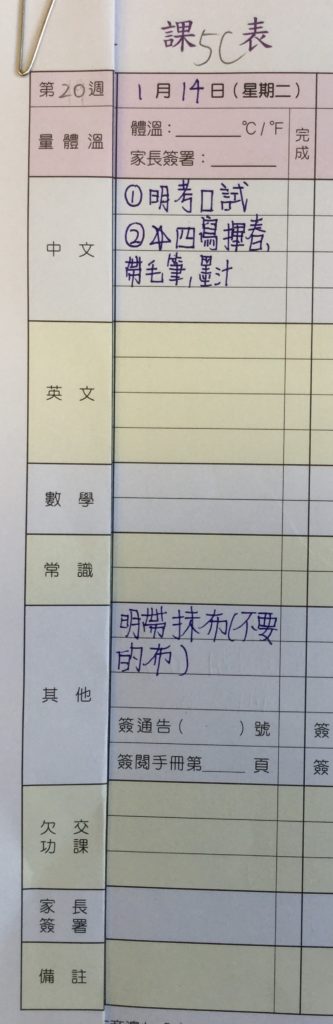 課5C表
第20週 1月14日(星期二)
量體溫 體溫:______℃/℉ 完成
家長簽署:______
中文 ①明考口試
②本四寫揮春,
帶毛筆,墨汁
英文
數學
常識
其他 明帶抹布(不要
的布)
簽通告( )號 簽
簽閱手冊第____頁 簽
欠交
功課
家長
簽署
備註